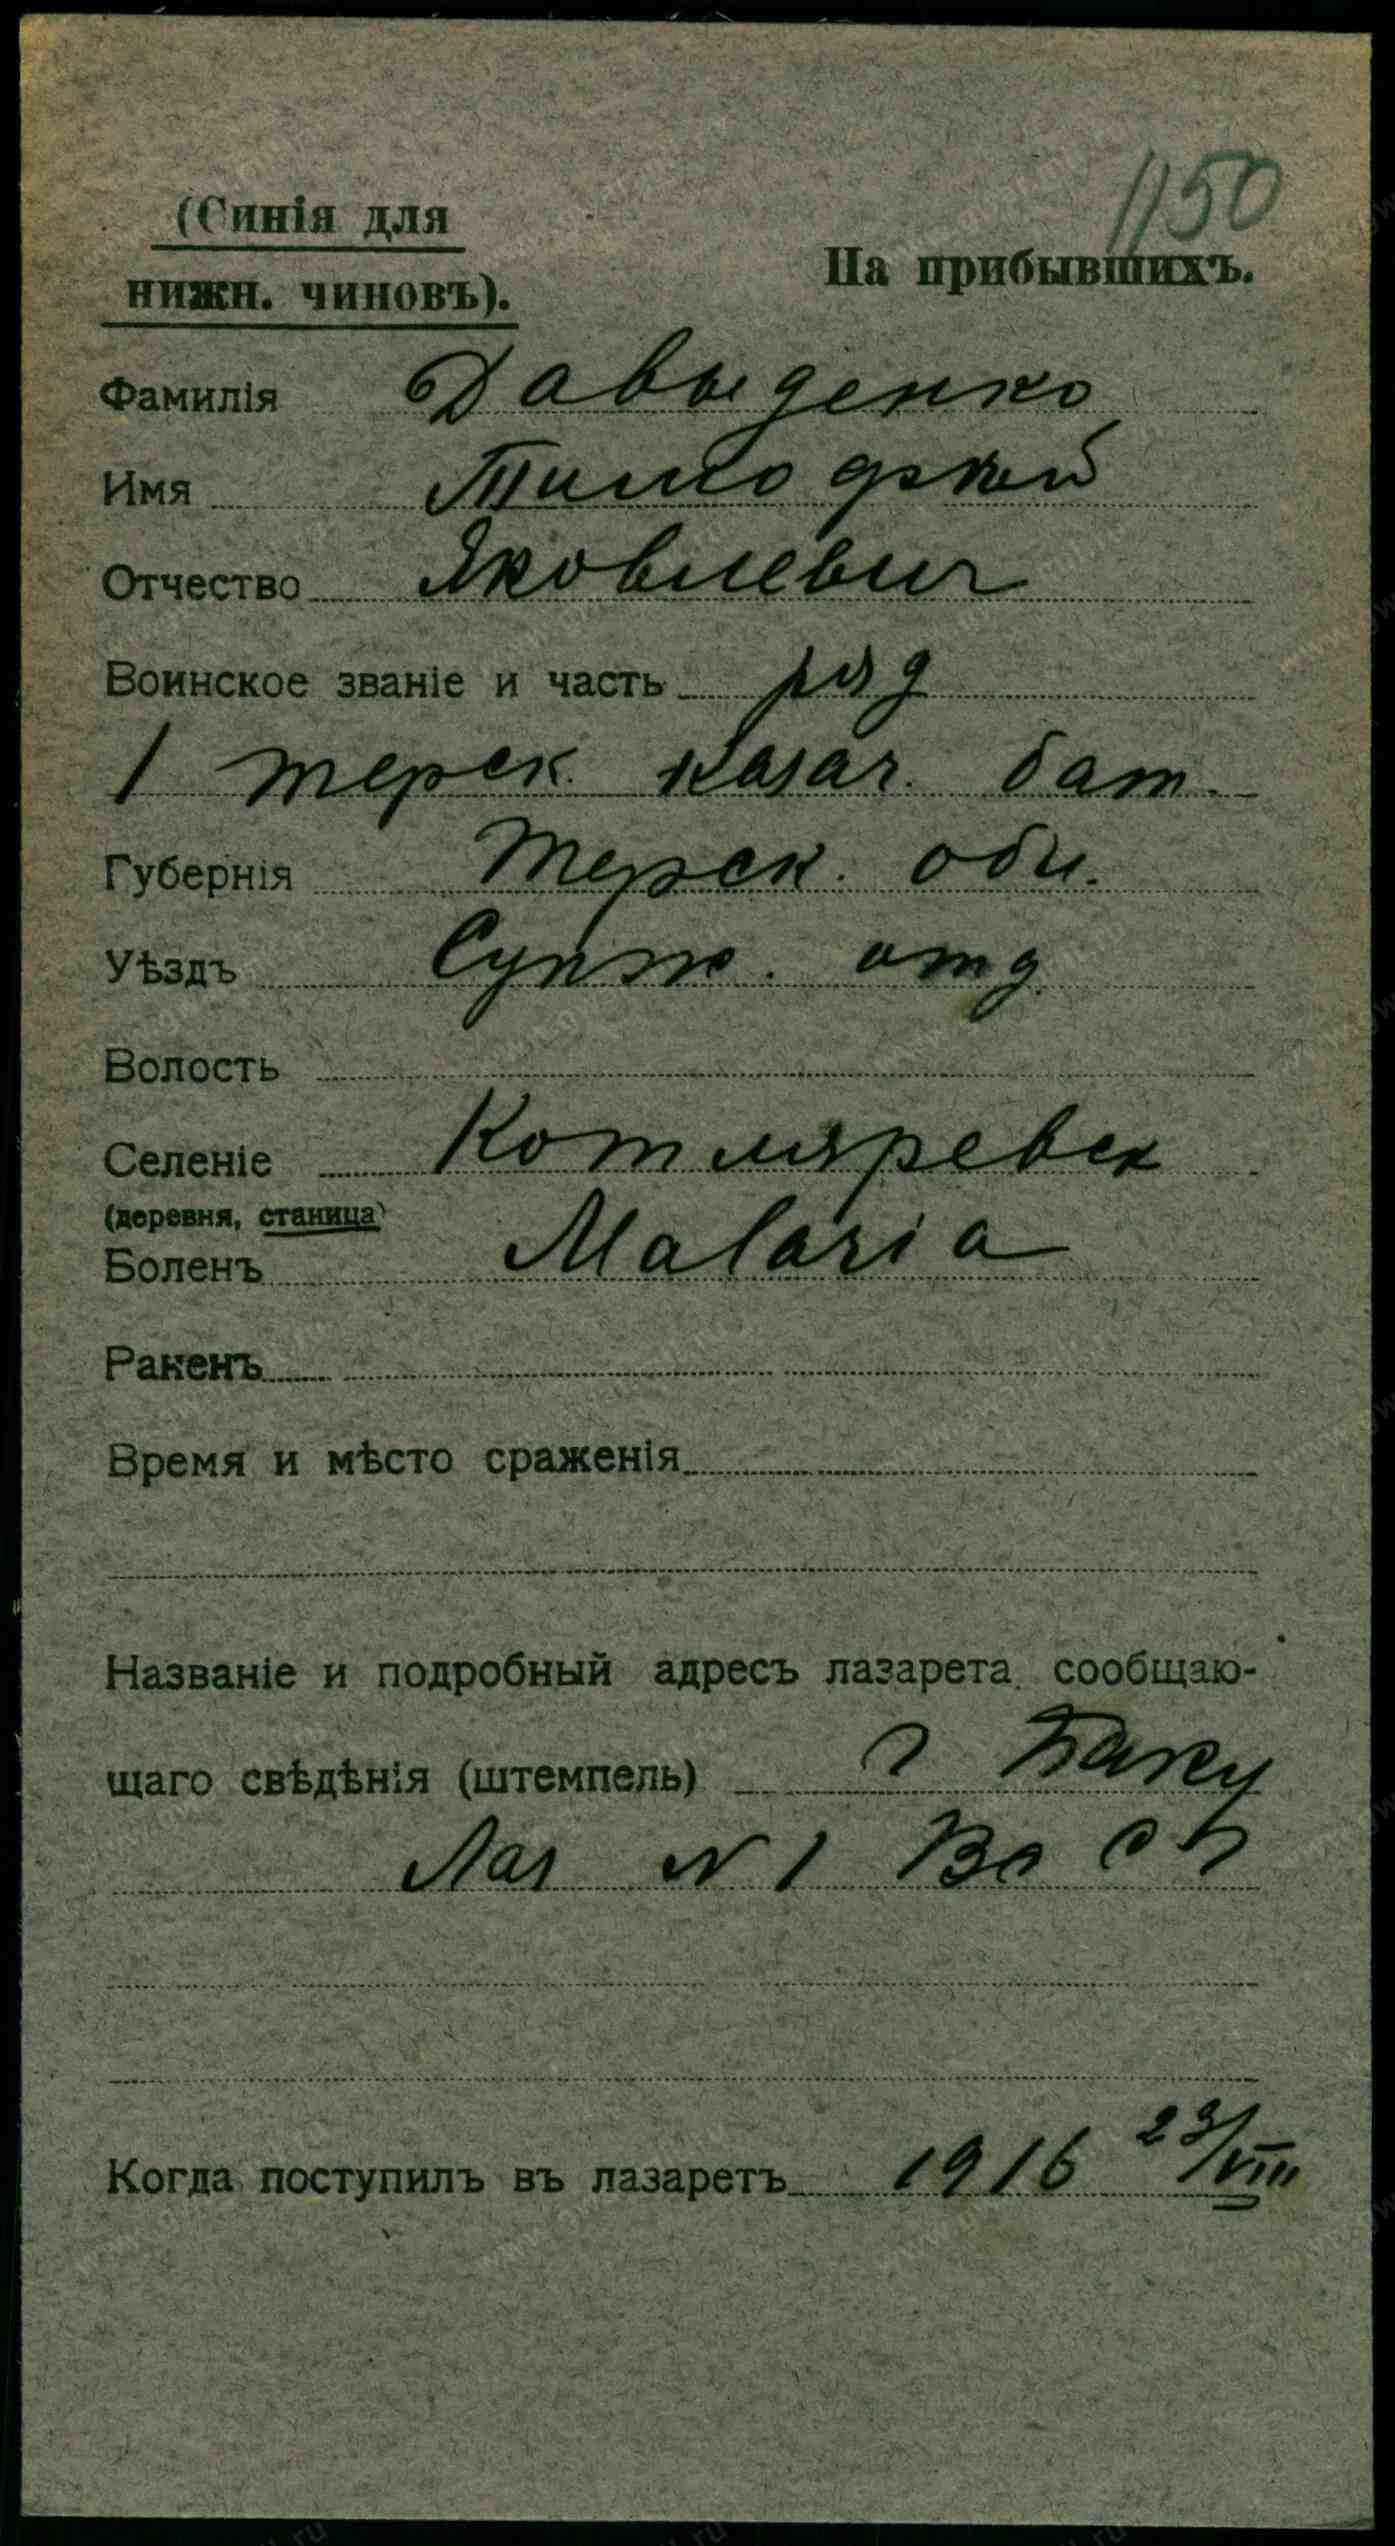 1150
(Синія для
нижн. чиновъ).
На прибывшихъ.
Фамилія Давыденко
Имя Тимофѣй
Отчество Яковлевич
Воинское званіе и часть ряд
1 терск. казач. бат.
Губернія Терск. обл.
Уѣздъ Сунж. отд.
Волость
Селеніе Котляревск
(деревня, станица)
Боленъ Malaria
Раненъ
Время и мѣсто сраженія
Названіе и подробный адресъ лазарета, сообщаю-
щаго свѣдѣнія (штемпель) г Баку
Лаз N 1
Когда поступилъ въ лазаретъ 1916 23/VIII